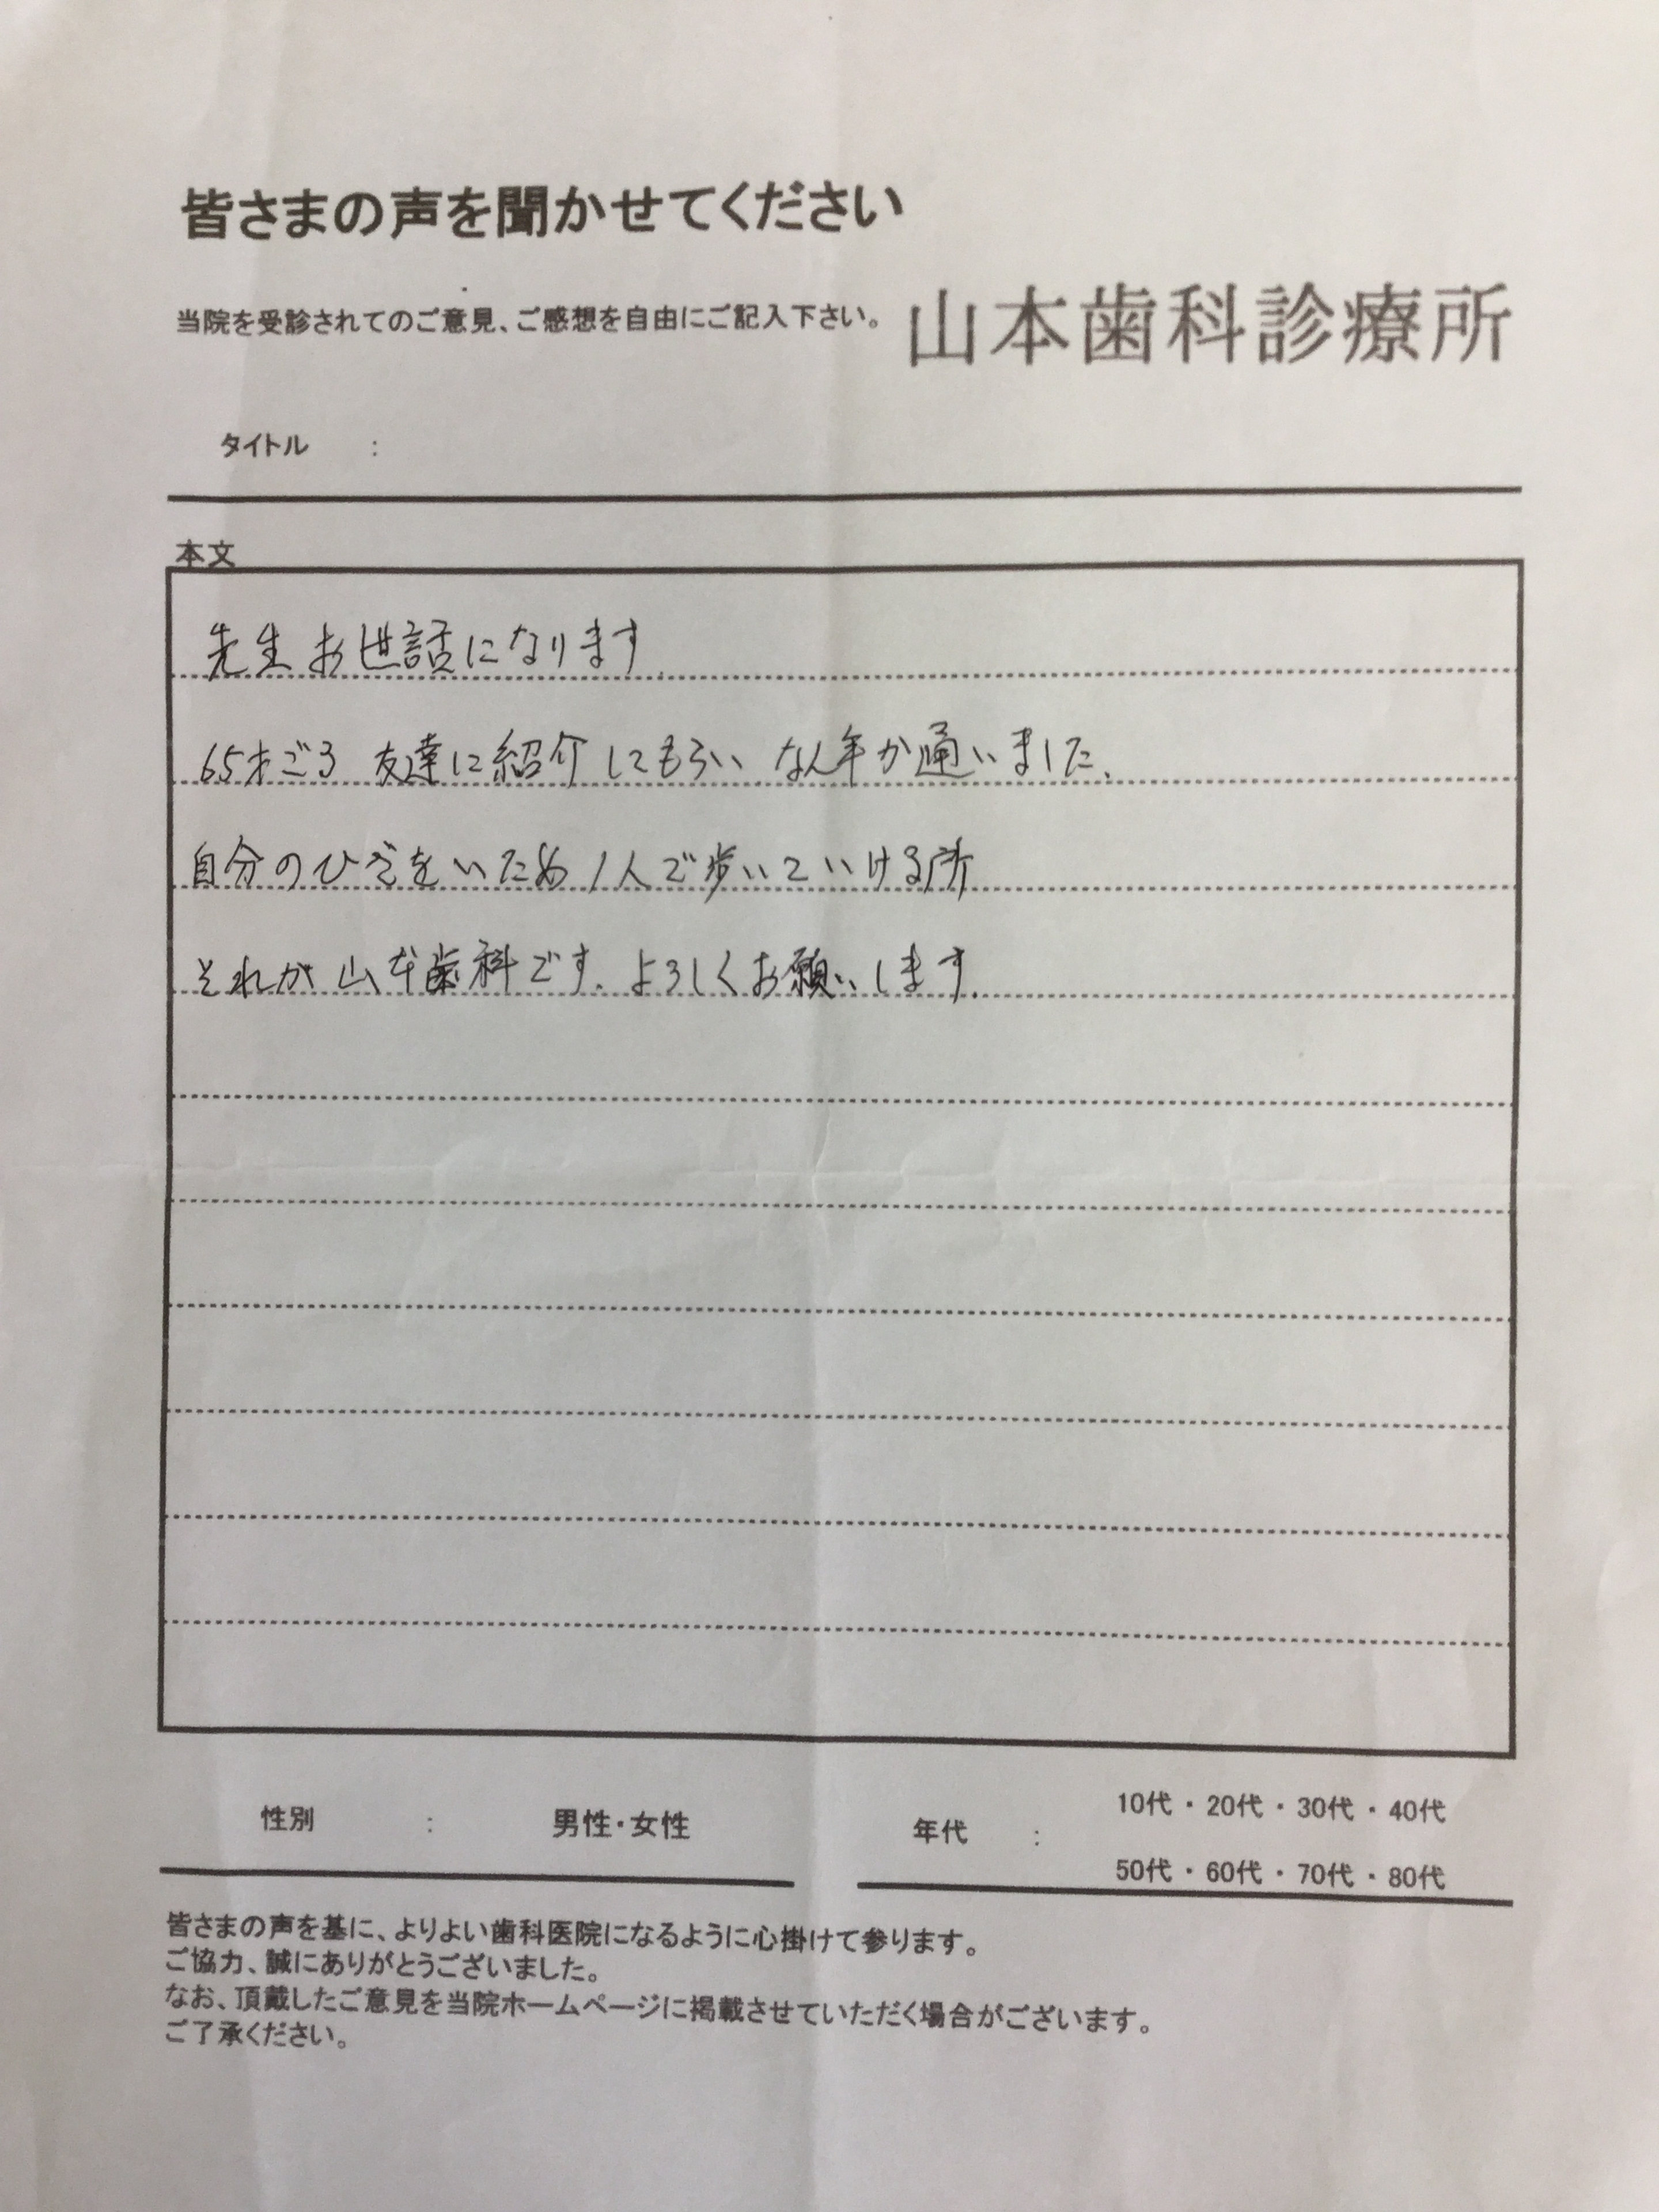 皆さまの声を聞かせてください
当院を受診されてのご意見、ご感想を自由にご記入下さい。
山本歯科診療所
タイトル :
本文
先生お世話になります.
65才ごろ 友達に紹介してもらい なん年か通いました、
自分のひざをいため 1人で歩いていける所
それが山本歯科です、よろしくお願いします.
性別 : 男性・女性
年代 : 10代・20代・30代・40代
50代・60代・70代・80代
皆さまの声を基に、よりよい歯科医院になるように心掛けて参ります。
ご協力、誠にありがとうございました。
なお、頂戴したご意見を当院ホームページに掲載させていただく場合がございます。
ご了承ください。